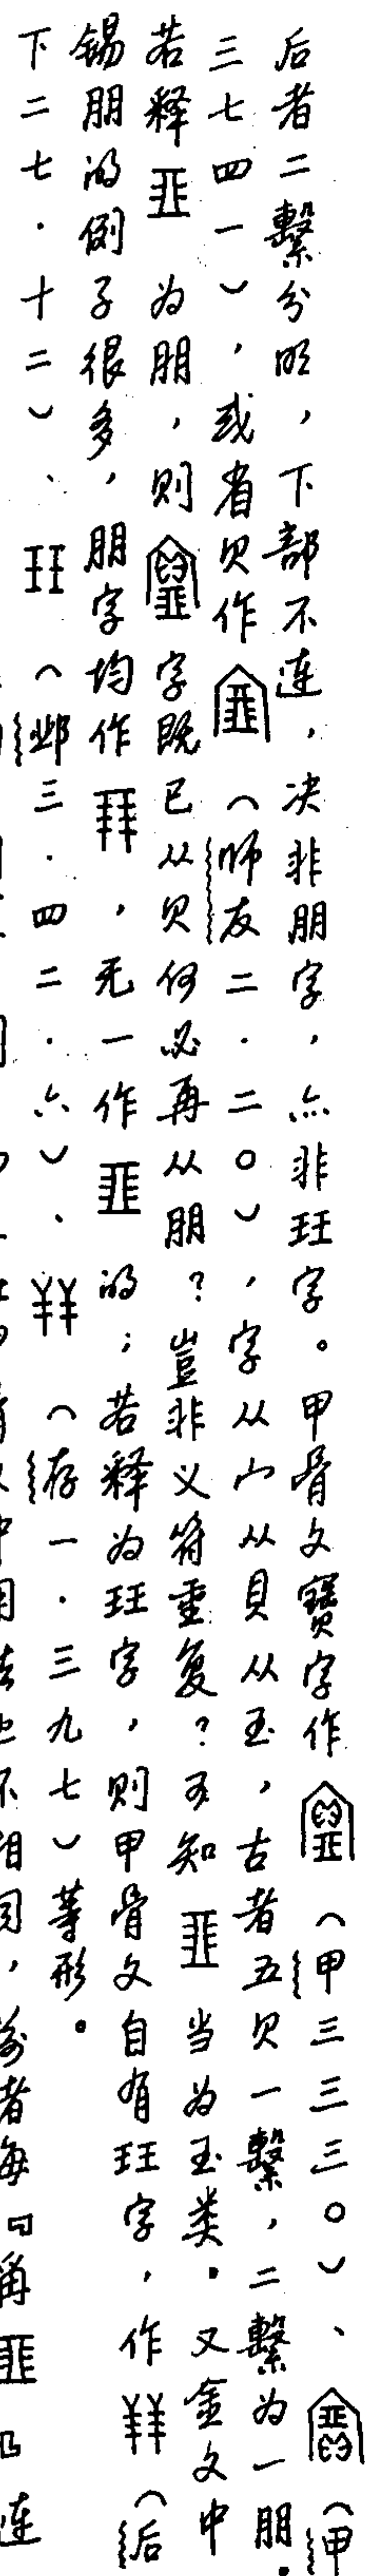 后者二繫分明，下部不连，决非朋字，亦非玨字。甲骨文寶字作（甲三三三〇）、（甲
三七四一），或省贝作（师友二·二〇），字从宀从貝从玉，古者五贝一繫，二繫为一朋·
若释为朋，则字既已从贝何必再从朋？豈非义符重复？可知当为玉类·又金文中
锡朋的例子很多，朋字均作，无一作的；若释为玨字，则甲骨文自有玨字，作（后
下二七·十二）、（邺三·四二·六）、（存一·三九七）等形。
不相同，前者每口稱連